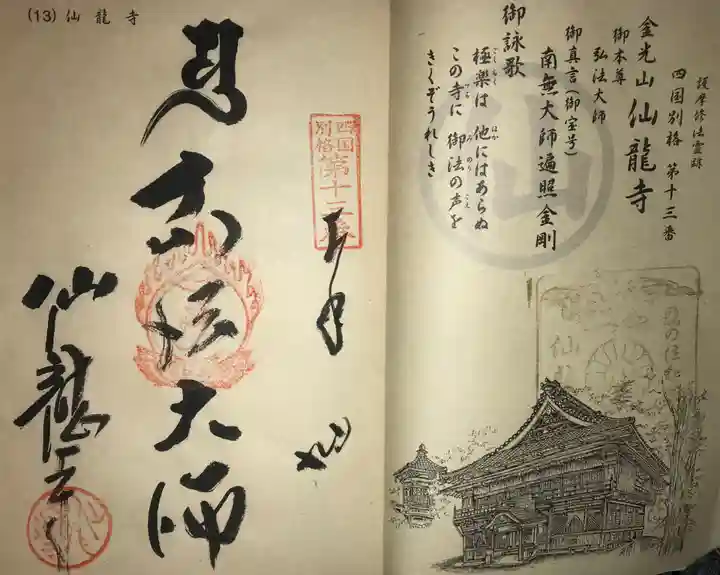 護摩修法霊跡
四国別格 第十三番
金光山 仙龍寺
御本尊
弘法大師
御真言(御宝号)
南無大師遍照金剛
御詠歌
極楽は 他にはあらぬ
この寺に 御法の声を
きくぞうれしき
仙
(13) 仙龍寺
四国
別格
第十三番
奉拝
弘法大師
仙龍寺